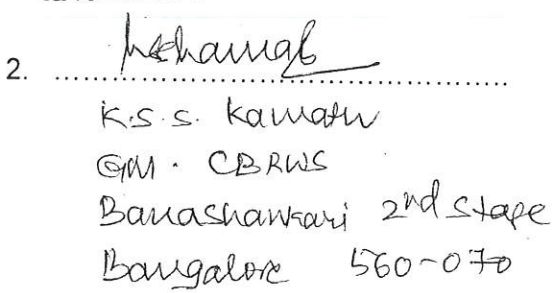 2. ........................................
K.S.S. Kamath
GM. CBRWS
Banashankari 2nd Stage
Bangalore 560-070